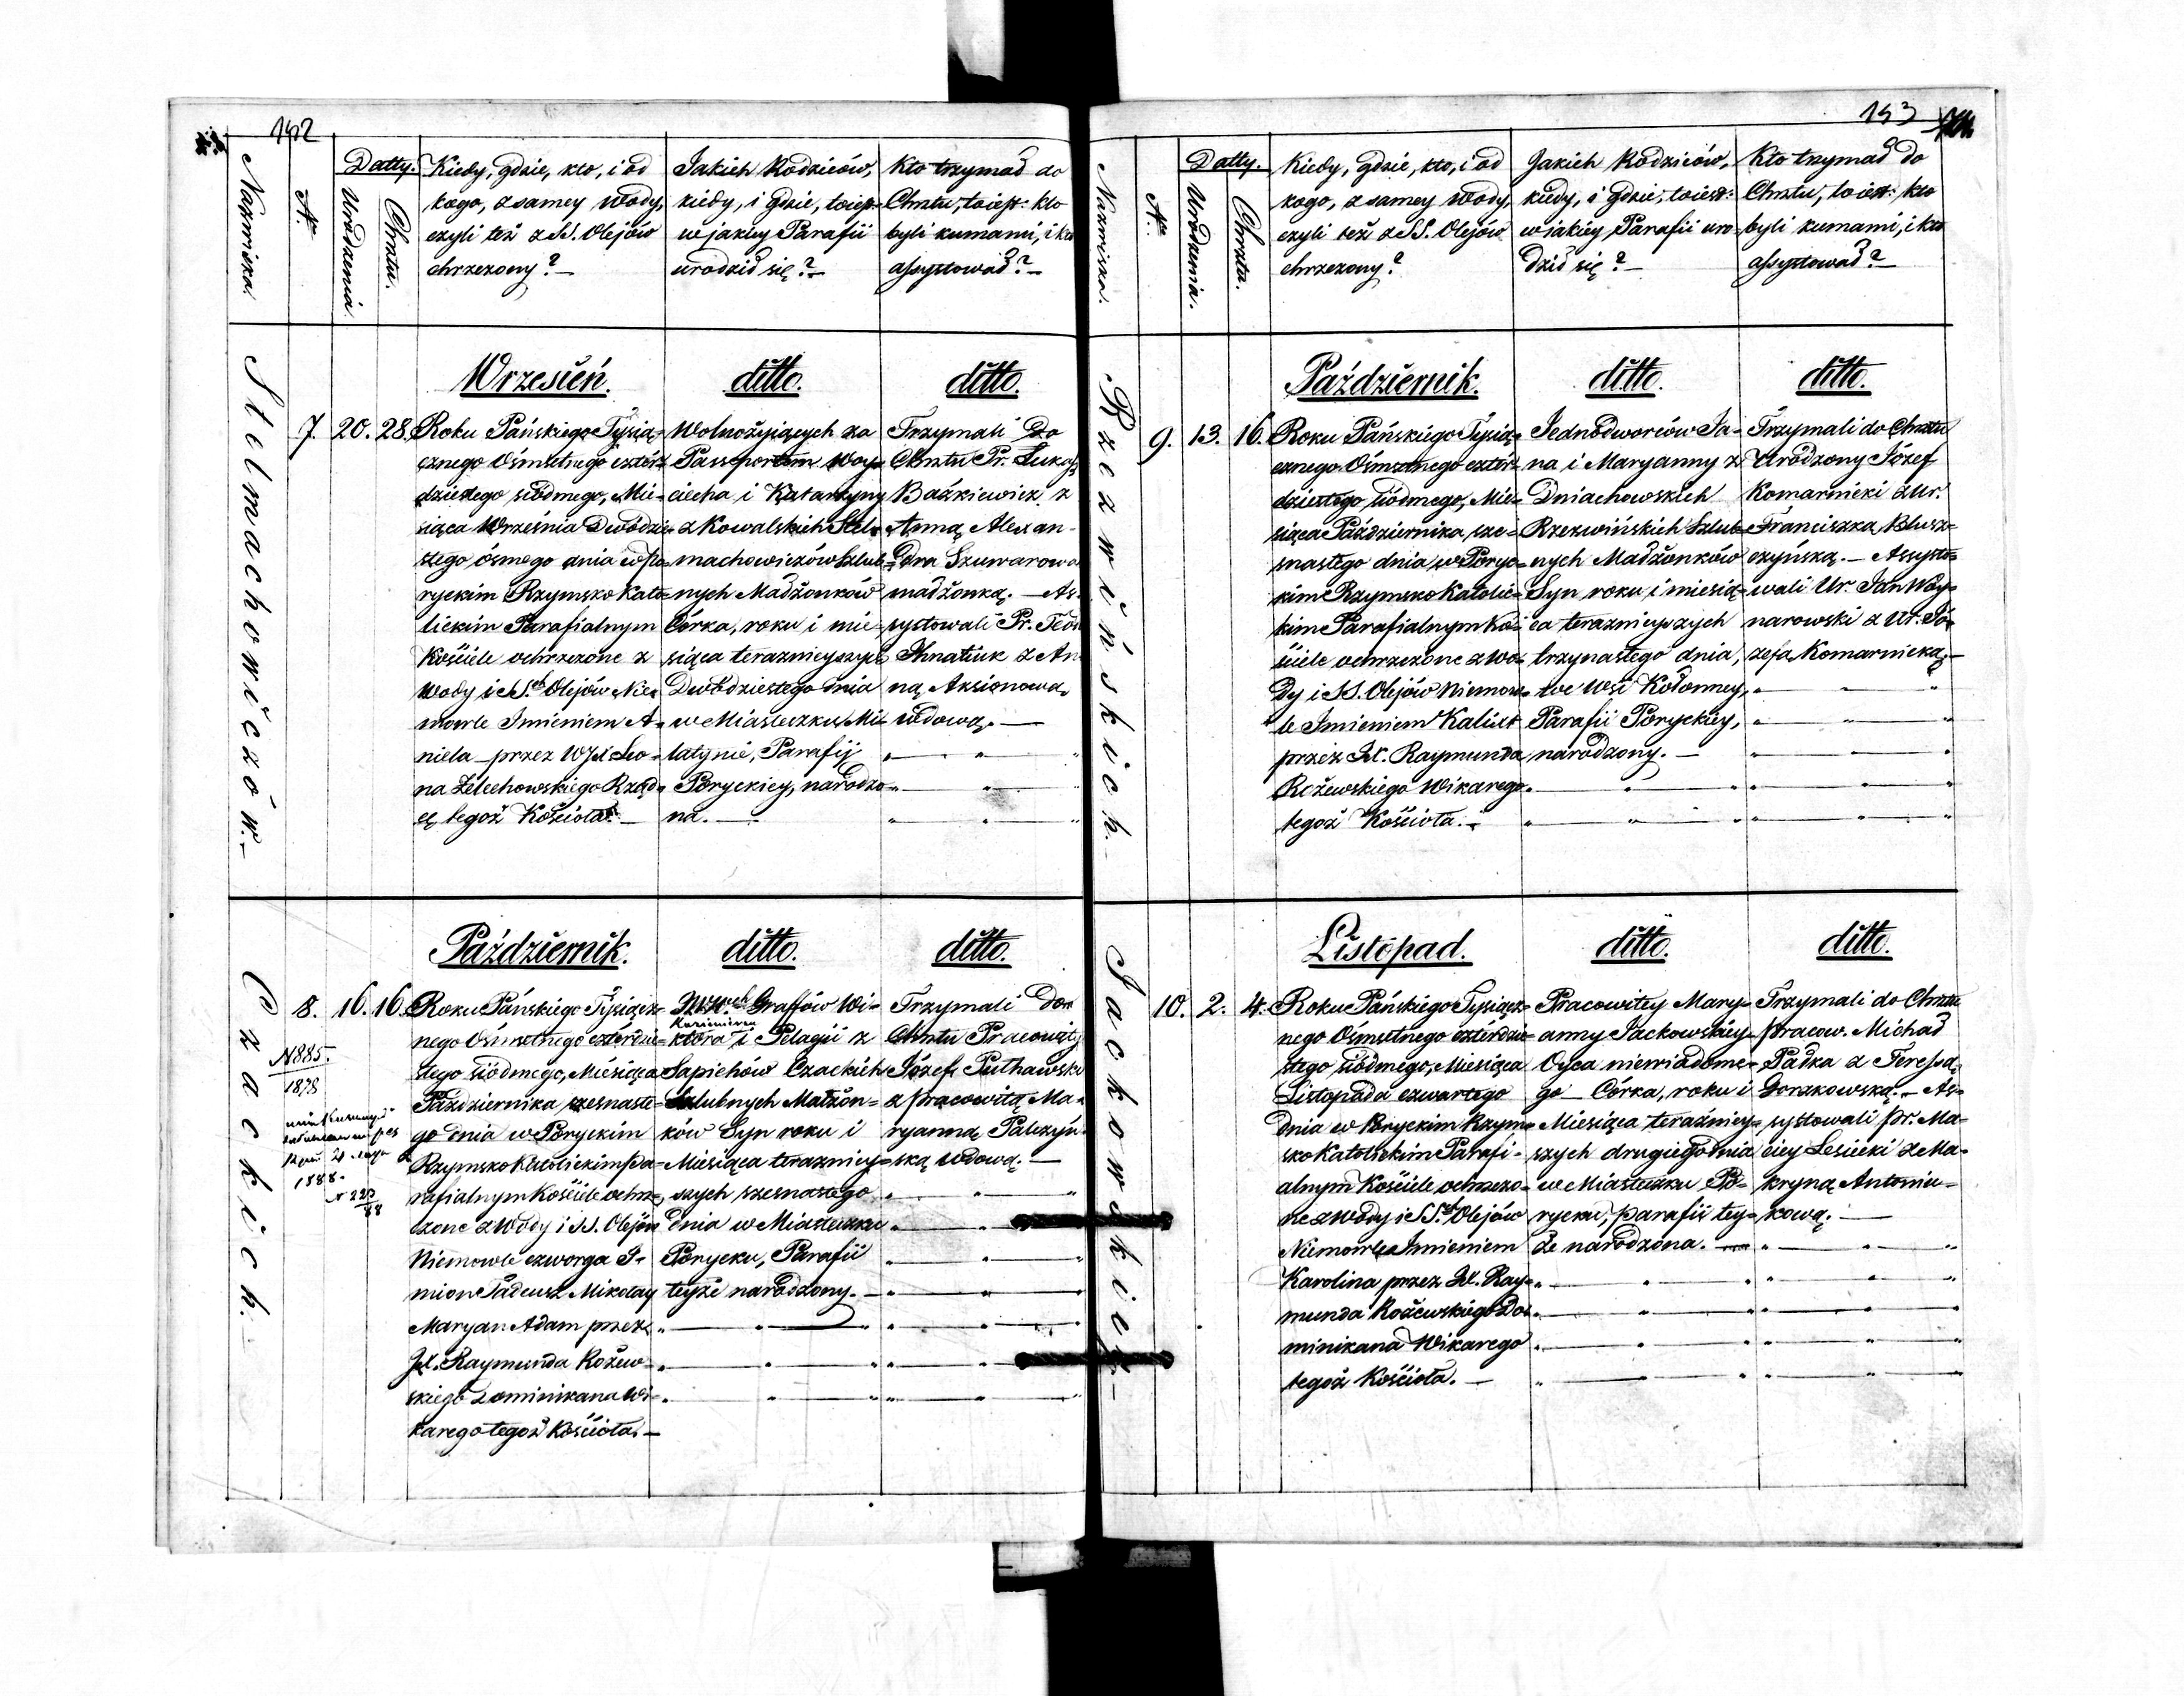 152
Nazwiska.
No.
Datty.
Urodzenia.
Chrztu.
Kiedy, gdzie, kto, i od
kogo, z samey wody,
czyli też z SS. Olejów
chrzczony?
Jakich Rodziców,
kiedy, i gdzie, toiest:
w jakiey Parafii
urodził się?
Kto trzymał do
Chrztu, toiest: kto
byli kumami, i kto
assystował?
Stelmachowiczów.
7.
20.
28.
Wrzesień.
Roku Pańskiego Tysią-
cznego Ośmsetnego czter-
dziestego siódmego, Mie-
siąca Września Dwódzie-
stego ósmego dnia w Po-
ryckim Rzymsko Kato-
lickim Parafialnym
Kościele ochrzczone z
wody i SS. Olejów Nie-
mowle Imieniem A-
niela przez WJX Leo-
na Żelechowskiego Rząd-
cę tegoż Kościoła.
ditto.
Wolnożyiących za
Passportem Woy-
ciecha i Katarzyny
z Kowalskich Stel-
machowiczów Szlub-
nych Małżonków
Córka, roku i mie-
siąca teraznieyszych
Dwódziestego dnia
w Miasteczku Mi-
latynie, Parafij
Poryckiey, narodzo-
na.
ditto.
Trzymali Do
Chrztu Pr. Łukasz
Bażkiewicz z
Anną Alexan-
dra Szuwarowa
małżonką. As-
systowali Pr. Teod
Ihnatiuk z An-
ną Aksionową
wdową.
Czackich.
8.
N885.
1878
1888.
N 223
88
16.
16.
Październik.
Roku Pańskiego Tysiącz-
nego Ośmsetnego czterdzie-
stego siódmego, Miesiąca
Października szesnaste-
go dnia w Poryckim
Rzymsko Katolickim Pa-
rafialnym Kościele ochrz-
czone z Wody i SS. Olejów
Niemowle czworga I-
mion Tadeusz Mikołay
Maryan Adam przez
JX. Raymunda Rożew-
skiego Dominikana Wi-
karego tegoż Kościoła.
ditto.
Graffów Wi-
Kazimierza
ktora i Pelagii z
Sapiehów Czackich
Szlubnych Małżon-
ków Syn roku i
Miesiąca teraźniey-
szych szesnastego
dnia w Miasteczku
Porycku, Parafii
teyże narodzony.
ditto.
Trzymali Do
Chrztu Pracowity
Józef Puthawski
z pracowitą Ma-
ryanną Palczyń-
ską wdową.
153
Nazwiska.
No.
Datty.
Urodzenia.
Chrzta.
Kiedy, gdzie, kto, i od
kogo, z samey wody,
czyli też z SS. Olejów
chrzczony?
Jakich Rodziców,
kiedy, i gdzie, toiest:
w jakiey Parafii uro-
dził się?
Kto trzymał do
Chrztu, toiest: kto
byli kumami, i kto
assystował?
Rzezwińskich.
9.
13.
16.
Październik.
Roku Pańskiego Tysią-
cznego Ośmsetnego czter-
dziestego siódmego, Mie-
siąca Października, sze-
snastego dnia w Poryc-
kim Rzymsko Katolic-
kim Parafialnym Ko-
ściele ochrzczone z Wo-
dy i SS. Olejów Niemow-
le Imieniem Kalixt
przez JX. Raymunda
Rożewskiego Wikarego
tegoż Kościoła.
ditto.
Jednodworców Ja-
na i Maryanny z
Dniachowskich
Rzezwińskich Szlub-
nych Małżonków
Syn roku i miesią-
ca teraznieyszych
trzynastego dnia,
we Wsi Kołonney,
Parafii Poryckiey,
narodzony.
ditto.
Trzymali do Chrztu
Urodzony Józef
Komarnicki z Ur.
Franciszką Blusz-
czyńską. Assysto-
wali Ur. Jan Woy-
narowski z Ur. Jó-
zefą Komarnicką.
Jackowskich.
10.
2.
4.
Listopad.
Roku Pańskiego Tysiącz-
nego Ośmsetnego czterdzie-
stego siódmego, Miesiąca
Listopada czwartego
dnia w Poryckim Rzym-
sko Katolickim Parafi-
alnym Kościele ochrzczo-
ne z Wody i SS. Olejów
Niemowle Imieniem
Karolina przez JX. Ray-
munda Rożewskiego Do-
minikana Wikarego
tegoż Kościoła.
ditto.
Pracowitey Mary-
anny Jackowskiey
Oyca niewiadome-
go Córka, roku i
Miesiąca teraźniey-
szych drugiego dnia
w Miasteczku Po-
rycku, parafii tey-
że narodzona.
ditto.
Trzymali do Chrztu
pracow. Michał
Pałka z Teressą
Gorzkowską. As-
systowali pr. Ma-
ciey Lesiecki z Ma-
kryną Antoniu-
kową.